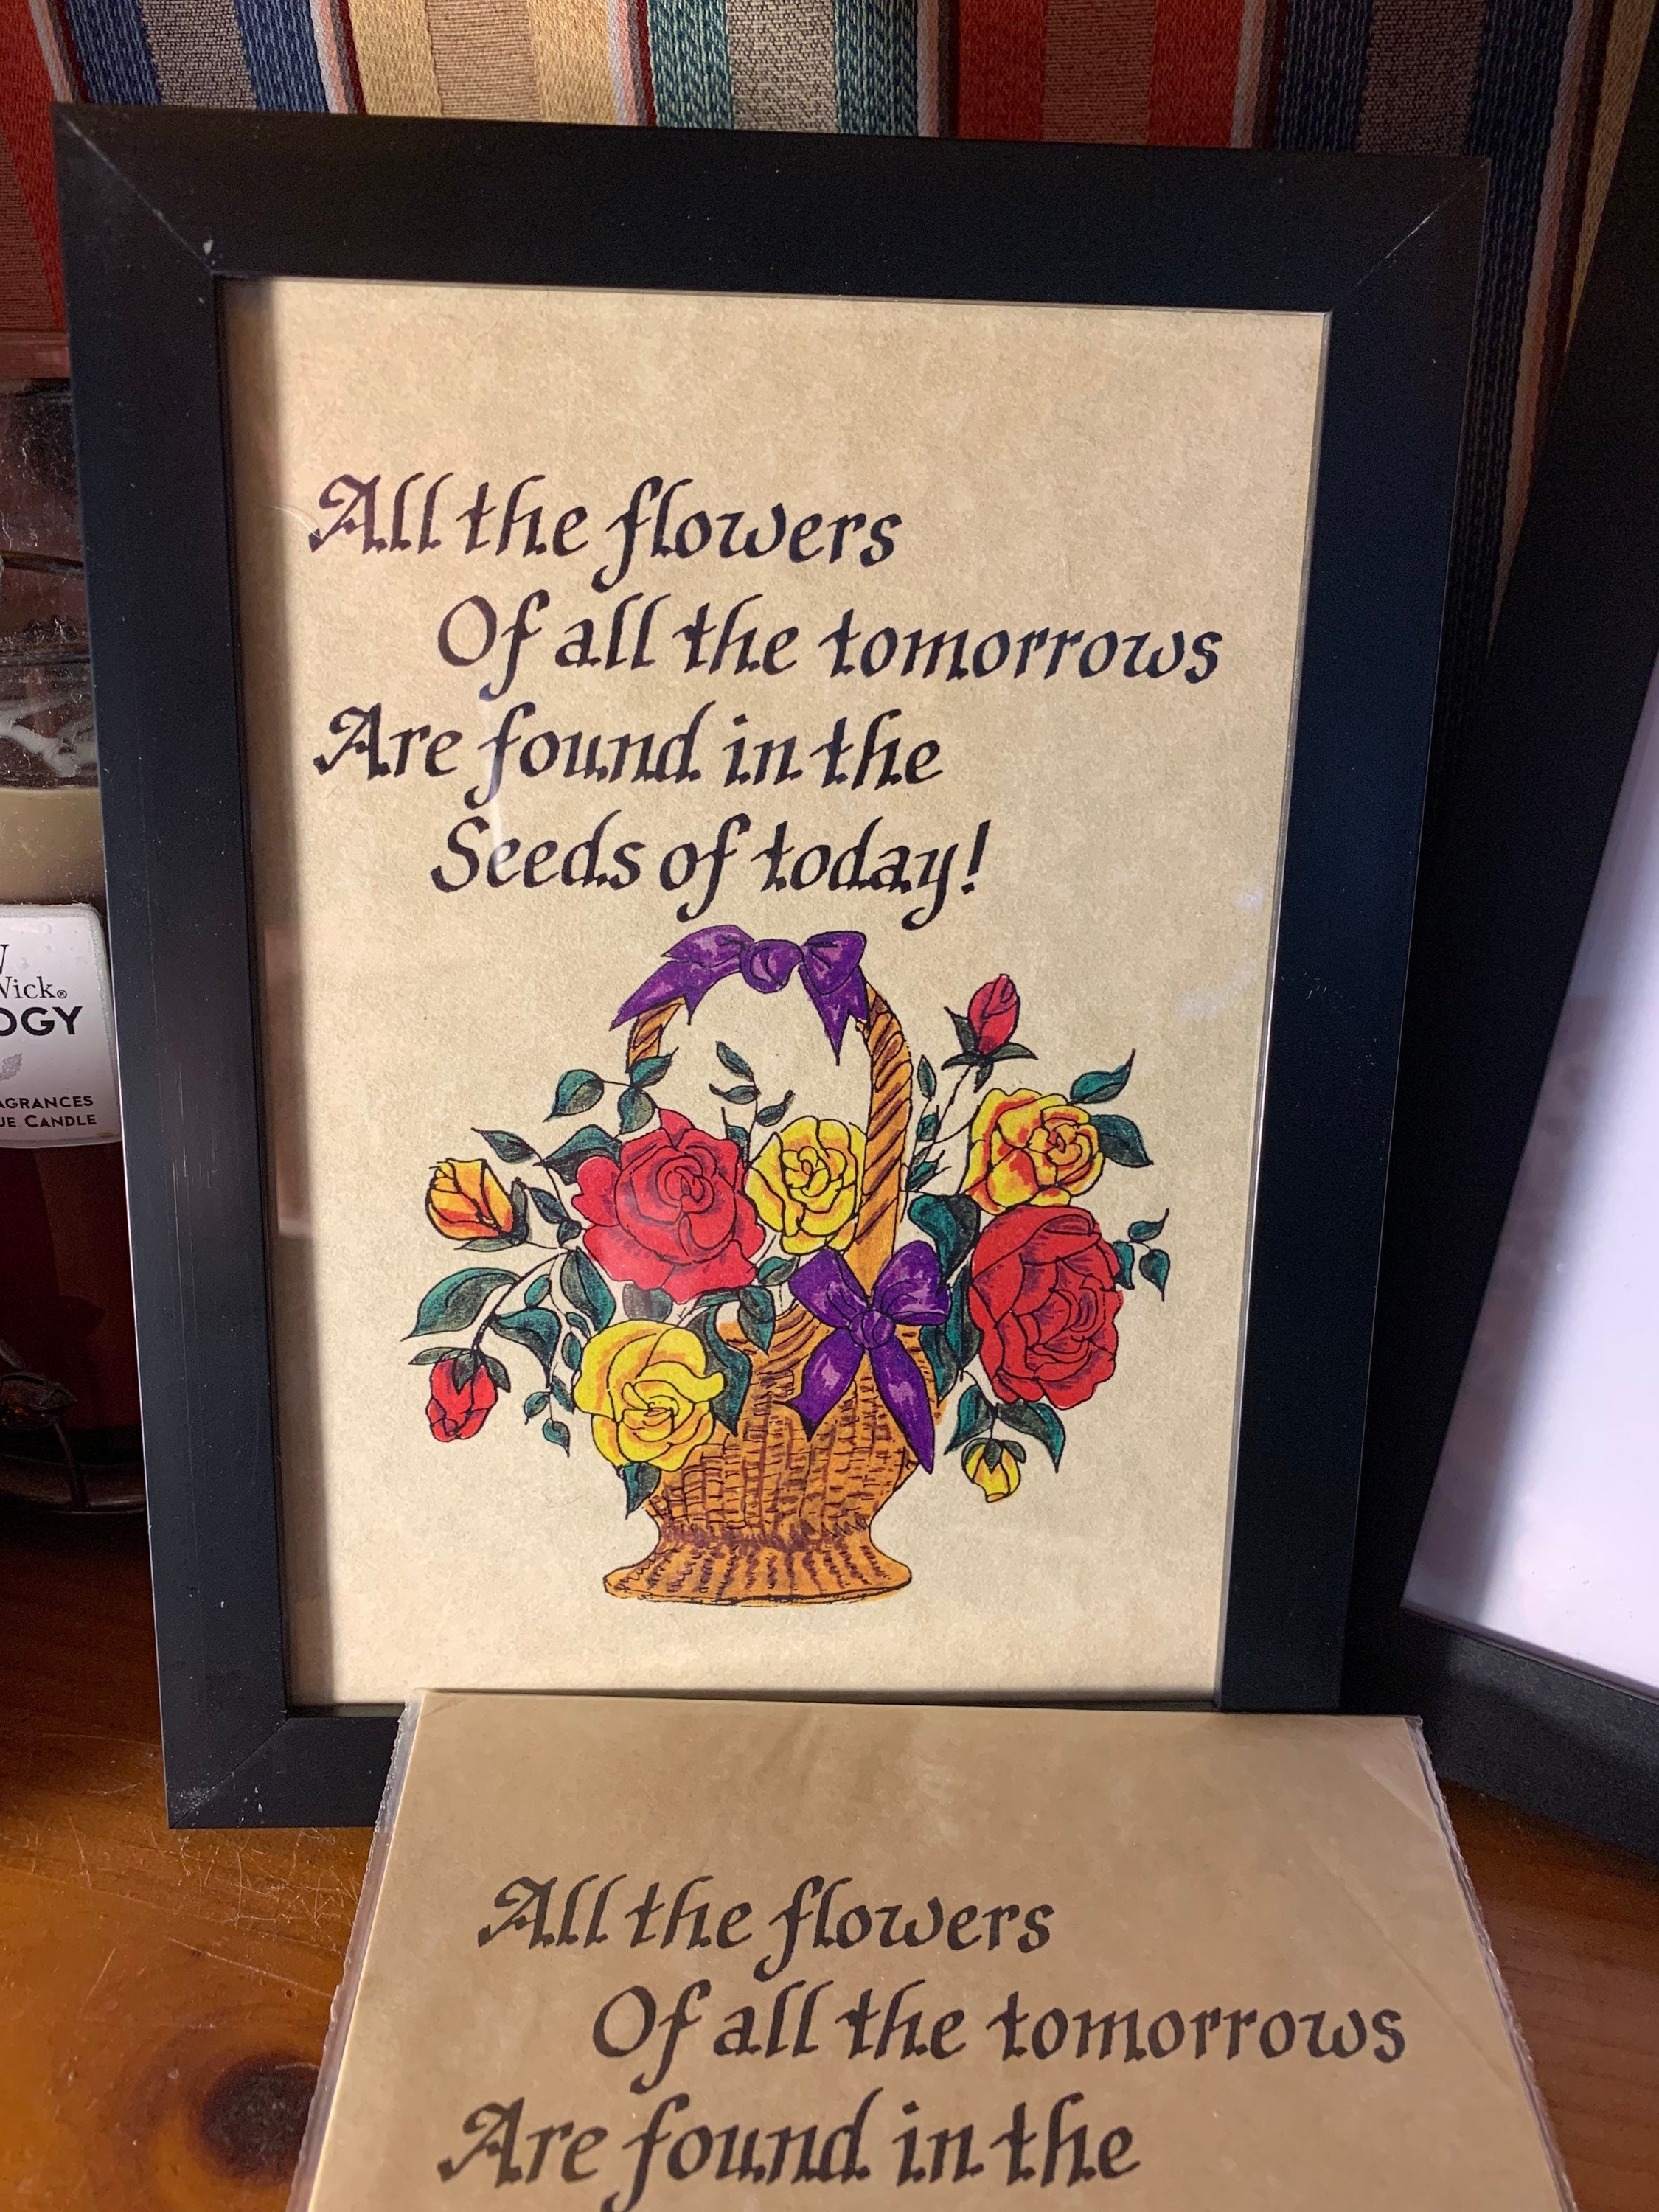 All the flowers
Of all the tomorrows
Are found in the
Seeds of today!
Wick®
OGY
CANDLE
All the flowers
Of all the tomorrows
Are found in the